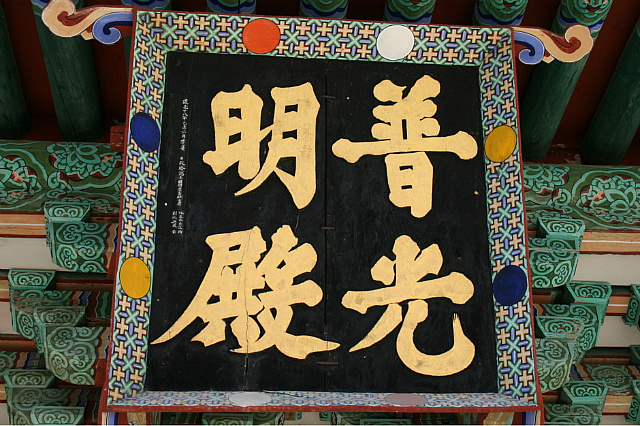 普光
明殿